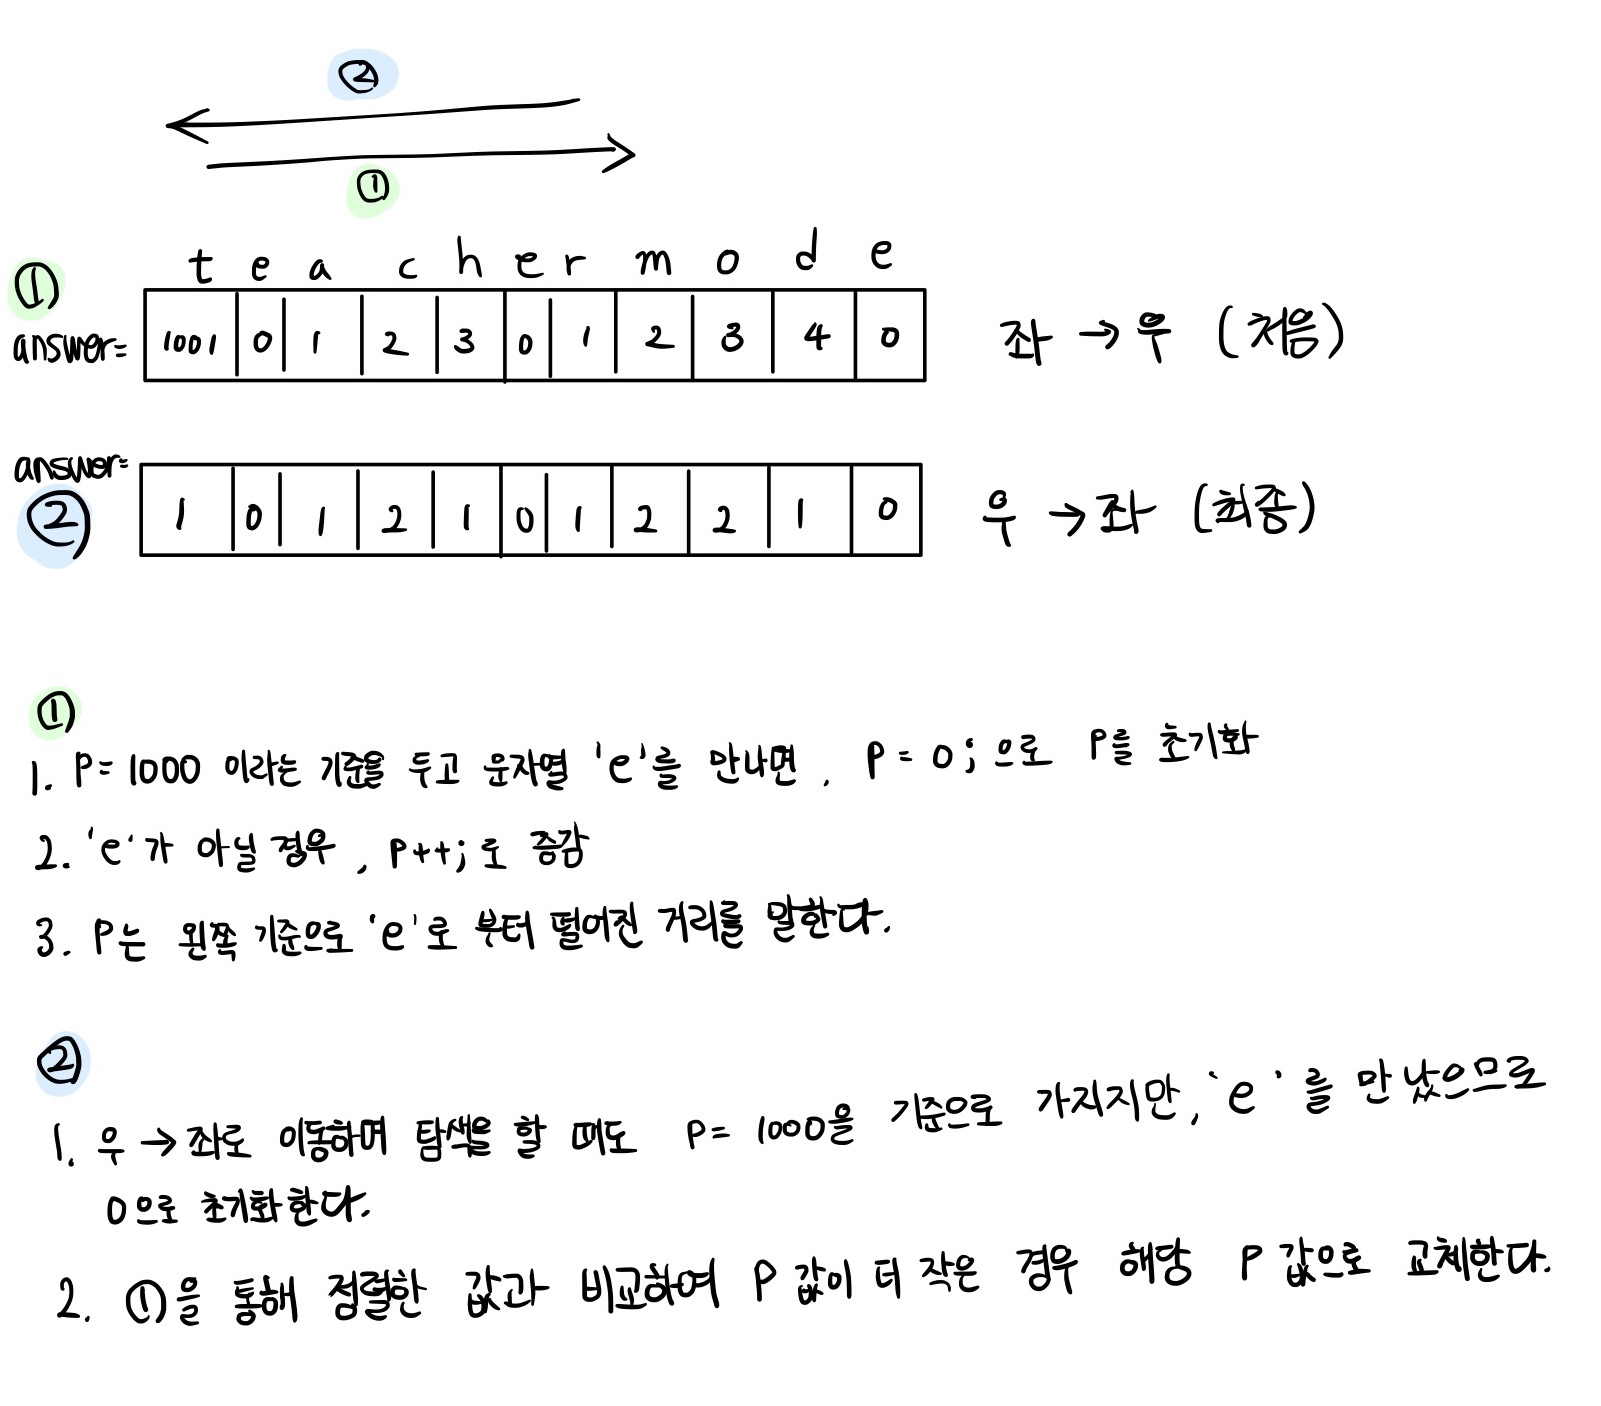 ②
①
t e a c h e r m o d e
①
answer= 1001 0 1 2 3 0 1 2 3 4 0 좌 → 우 (처음)
answer= 1 0 1 2 1 0 1 2 2 1 0 우 → 좌 (최종)
②
①
1. P = 1000 이라는 기준을 두고 문자열 'e'를 만나면, P = 0; 으로 P를 초기화
2. 'e'가 아닐 경우, P++; 로 증감
3. P는 왼쪽 기준으로 'e'로 부터 떨어진 거리를 말한다.
②
1. 우 → 좌로 이동하며 탐색을 할 때도 P = 1000을 기준으로 가지지만, 'e'를 만났으므로
0으로 초기화한다.
2. ①을 통해 정렬한 값과 비교하여 P 값이 더 작은 경우 해당 P 값으로 교체한다.